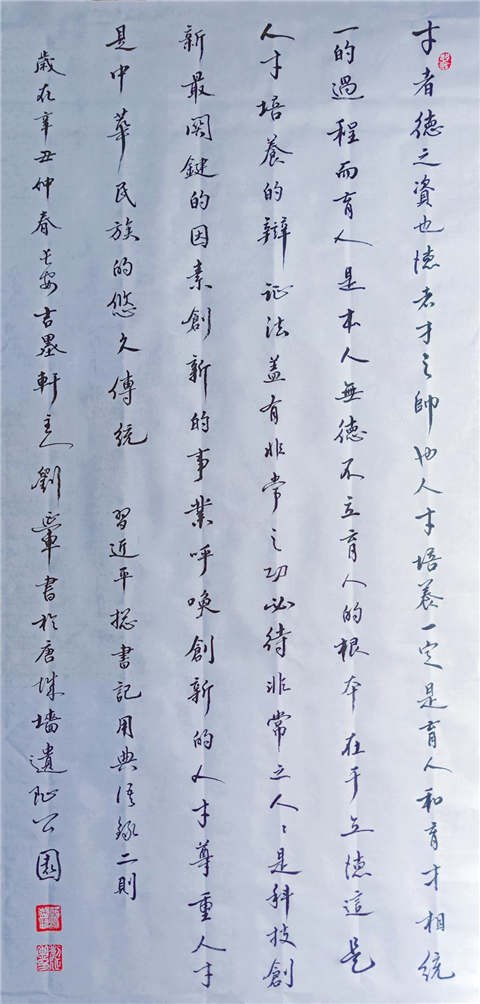 才者德之資也德者才之帥也人才培養一定是育人和育才相統
一的過程而育人是本人無德不立育人的根本在于立德這是
人才培養的辯証法蓋有非常之功必待非常之人〻是科技創
新最関鍵的因素創新的事業呼喚創新的人才尊重人才
是中華民族的悠久傳統 習近平揔書記用典語錄二則
歲在辛丑仲春長安吉墨軒主劉書於唐城墻遺址公園